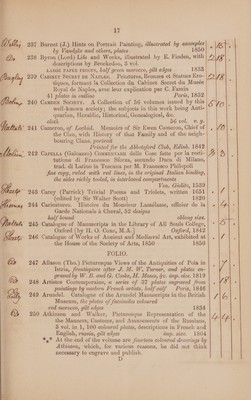 237 Burnet (J.) Hints on Portrait Painting, illustrated by examples
by Vandyke and others, plates 1850
238 Byron (Lord) Life and Works, illustrated by E. Finden, with
descriptions by Brockedon, 3 vol.
LARGE PAPER PROOFS, half green morocco, gilt edges 1833
239 CABINET SECRET DE NAPLES. Peintures, Bronzes et Statues Erotiques,
formant la Collection du Cabinet Secret du Musée
Royal de Naples, avec leur explication par C. Famin
41 plates in outline Paris, 1832
240 CAMDEN SOCIETY. A Collection of 56 volumes issued by this
well-known society; the subjects in this work being Antiquarian,
Heraldic, Historical, Genealogical, &c.
cloth 56 vol. v. y.
241 Cameron, of Lochiel. Memoirs of Sir Ewen Cameron, Chief of
the Clan, with History of that Family and of the neighbouring
Clans portrait
Printed for the Abbotsford Club, Edinb. 1842
242 CAPELLA (Galeazzo) Commentario delle Cose fatte per la restitutione
di Francesco Sforza, secondo Duca di Milano,
trad. di Latino in Toscano per M. Francesco Philipopoli
fine copy, ruled with red lines, in the original Italian binding,
the sides richly tooled, in interlaced compartments
Ven. Giolito, 1539
243 Carey (Patrick) Trivial Poems and Triolets, written 1651
(edited by Sir Walter Scott) 1820
244 Caricatures. Histoire du Monsieur Lamélasse, officier de la
Garde Nationale à Cheval, 52 designs
half bound oblong size.
245 Catalogue of Manuscripts in the Library of All Souls College,
Oxford (by H. O. COXE, M.A.) Oxford, 1842
246 Catalogue of Works of Ancient and Mediæval Art, exhibited at
the House of Society of Arts, 1850 1850
FOLIO.
247 Allason (Tho.) Picturesque Views of the Antiquities of Pola in
Istria, frontispiece after J. M. W. Turner, and plates engraved
by W. B. and G. Cooke, H. Moses, &c. imp. size. 1819
248 Artistes Contemporains, a series of 37 plates engraved from
paintings by modern French artists, half calf Paris, 1846
249 Arundel. Catalogue of the Arundel Manuscripts in the British
Museum, the plates of facsimiles coloured
red morocco, gilt edges 1834
250 Atkinson and Walker, Picturesque Representation of the
the Manners, Customs, and Amusements of the Russians,
3 vol. in 1, 100 coloured plates, descriptions in French and
English, russia, gilt edges imp. size. 1804
*** At the end of the volume are fourteen coloured drawings by
Atkinson, which, for various reasons, he did not think
necessary to engrave and publish.
D